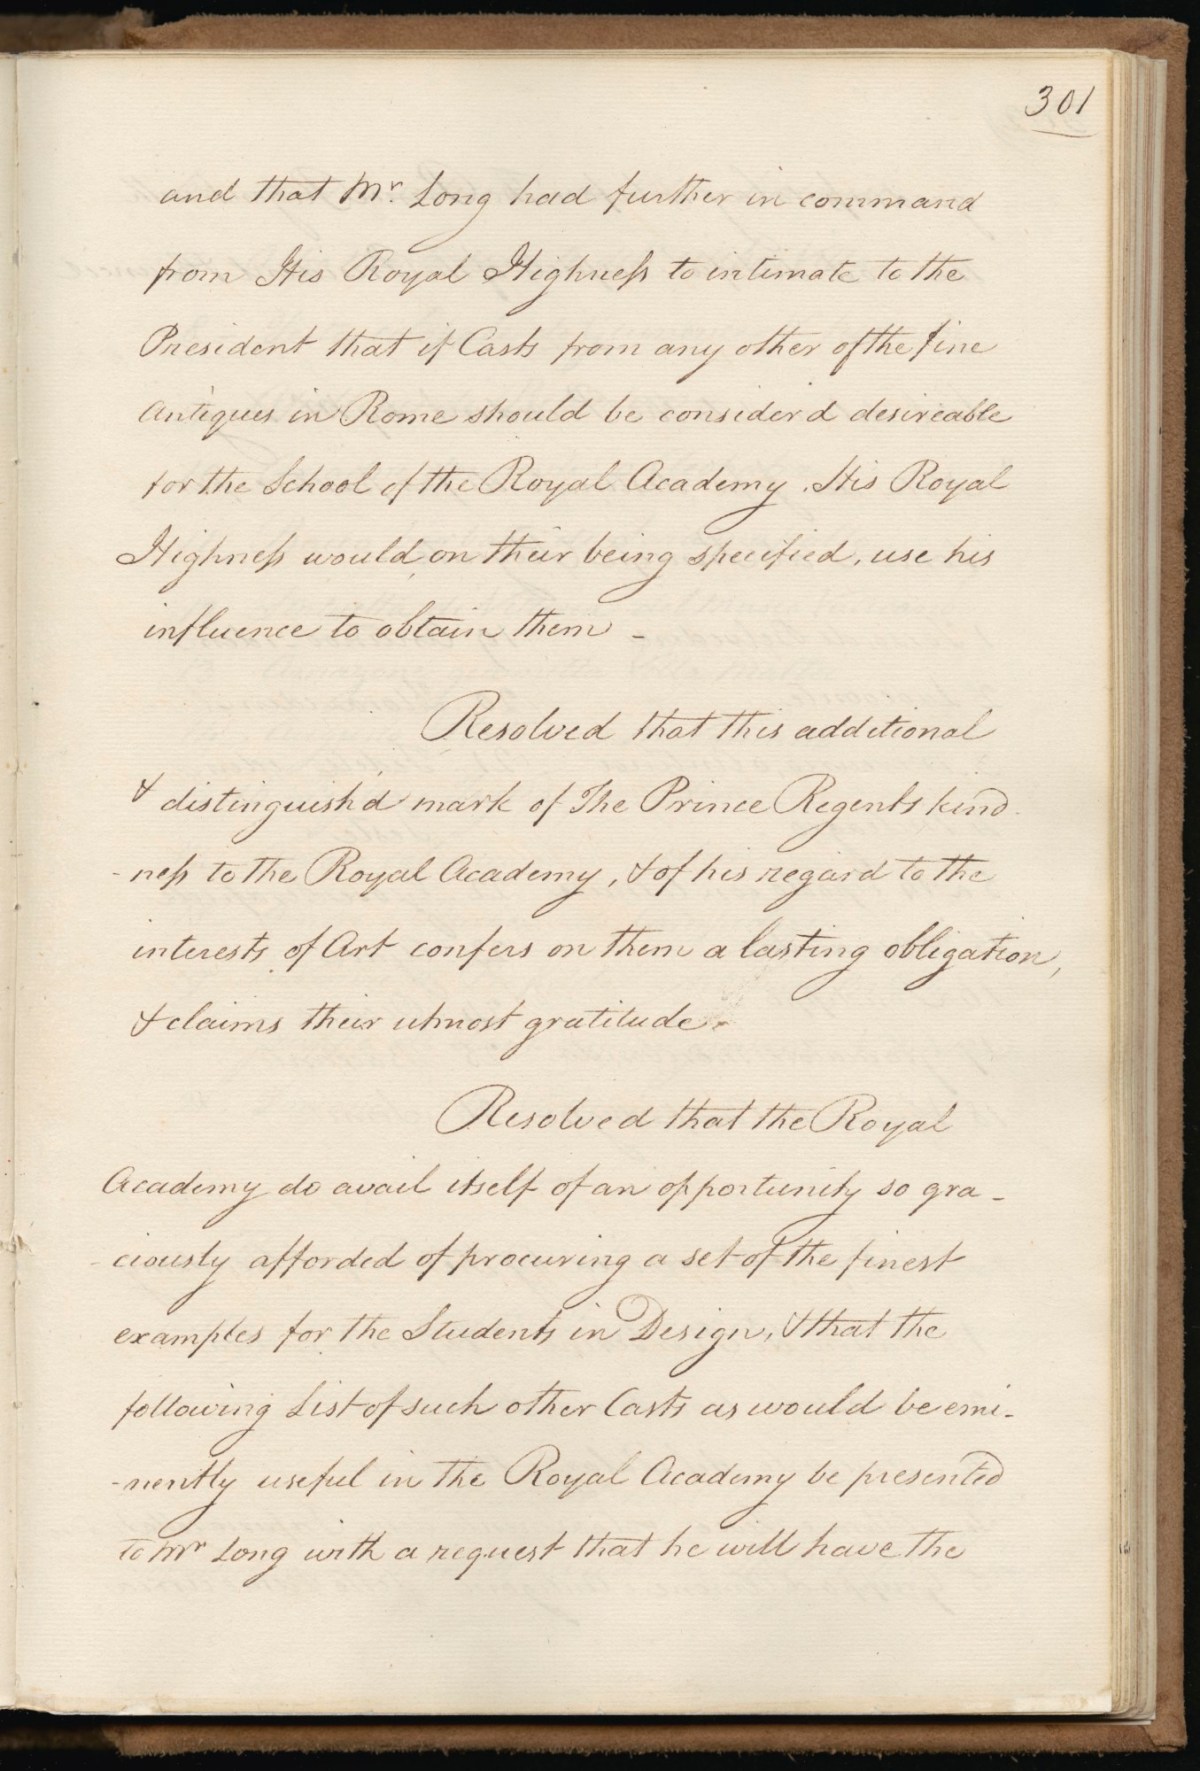 301
and that Mr. Long had further in command
from His Royal Highneſs to intimate to the
President that if Casts from any other of the fine
Antiques in Rome should be consider'd desireable
for the School of the Royal Academy. His Royal
Highneſs would on their being specified, use his
influence to obtain them -
Resolved that this additional
& distinguish'd mark of The Prince Regents kind
-neſs to the Royal Academy, & of his regard to the
interests of Art confers on them a lasting obligation,
& claims their utmost gratitude.
Resolved that the Royal
Academy do avail itself of an opportunity so gra-
-ciously afforded of procuring a set of the finest
examples for the Students in Design, & that the
following List of such other Casts as would be emi-
-nently useful in the Royal Academy be presented
to Mr Long with a request that he will have the